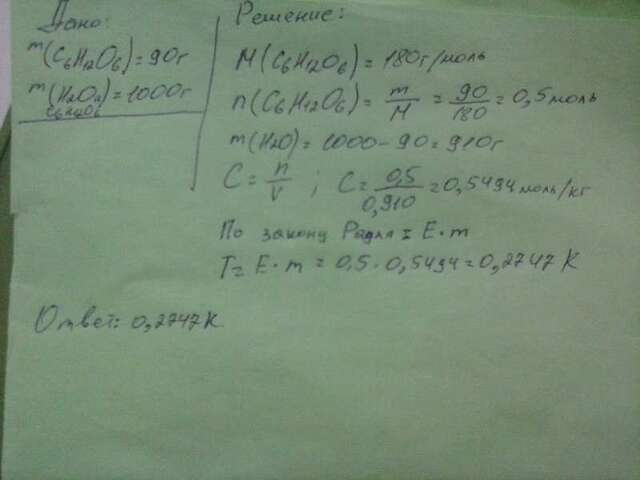 Дано:
m(C6H12O6)=90г
m(H2O2)=1000г
C6H12O6
Решение:
M(C6H12O6)=180г/моль
n(C6H12O6)=m/M=90/180=0,5моль
m(H2O)=1000-90=910г
C=n/V; C=0,5/0,910=0,5494моль/кг
По закону = E·m
T=E·m=0,5·0,5494=0,2747К
Ответ: 0,2747К